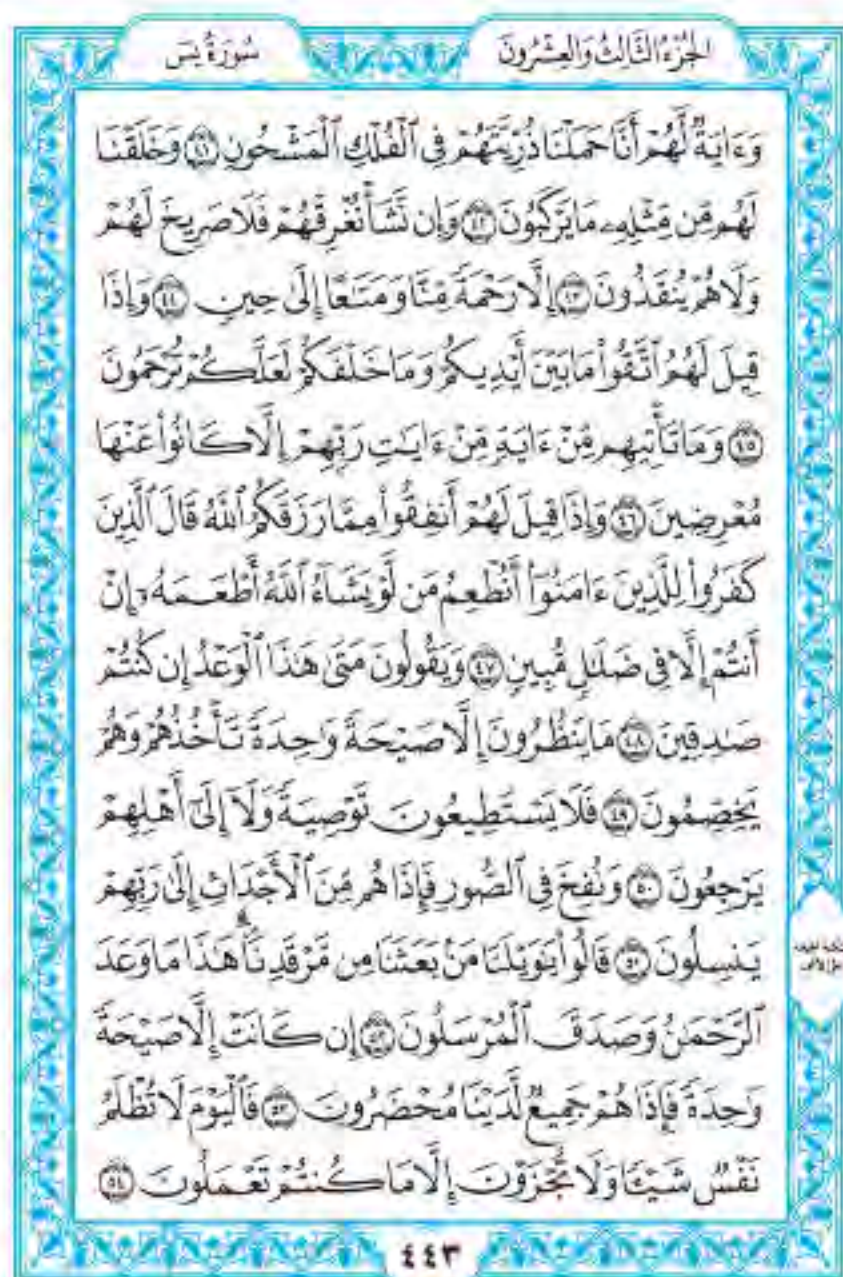 الجُزْءُ الثَّالِثُ وَالعِشْرُونَ
سُورَةُ يسٓ
وَءَايَةٌ لَّهُمْ أَنَّا حَمَلْنَا ذُرِّيَّتَهُمْ فِي ٱلْفُلْكِ ٱلْمَشْحُونِ ٤١ وَخَلَقْنَا
لَهُم مِّن مِّثْلِهِۦ مَا يَرْكَبُونَ ٤٢ وَإِن نَّشَأْ نُغْرِقْهُمْ فَلَا صَرِيخَ لَهُمْ
وَلَا هُمْ يُنقَذُونَ ٤٣ إِلَّا رَحْمَةً مِّنَّا وَمَتَٰعًا إِلَىٰ حِينٍ ٤٤ وَإِذَا
قِيلَ لَهُمُ ٱتَّقُوا۟ مَا بَيْنَ أَيْدِيكُمْ وَمَا خَلْفَكُمْ لَعَلَّكُمْ تُرْحَمُونَ
٤٥ وَمَا تَأْتِيهِم مِّنْ ءَايَةٍ مِّنْ ءَايَٰتِ رَبِّهِمْ إِلَّا كَانُوا۟ عَنْهَا
مُعْرِضِينَ ٤٦ وَإِذَا قِيلَ لَهُمْ أَنفِقُوا۟ مِمَّا رَزَقَكُمُ ٱللَّهُ قَالَ ٱلَّذِينَ
كَفَرُوا۟ لِلَّذِينَ ءَامَنُوٓا۟ أَنُطْعِمُ مَن لَّوْ يَشَآءُ ٱللَّهُ أَطْعَمَهُۥٓ إِنْ
أَنتُمْ إِلَّا فِي ضَلَٰلٍ مُّبِينٍ ٤٧ وَيَقُولُونَ مَتَىٰ هَٰذَا ٱلْوَعْدُ إِن كُنتُمْ
صَٰدِقِينَ ٤٨ مَا يَنظُرُونَ إِلَّا صَيْحَةً وَٰحِدَةً تَأْخُذُهُمْ وَهُمْ
يَخِصِّمُونَ ٤٩ فَلَا يَسْتَطِيعُونَ تَوْصِيَةً وَلَآ إِلَىٰٓ أَهْلِهِمْ
يَرْجِعُونَ ٥٠ وَنُفِخَ فِي ٱلصُّورِ فَإِذَا هُم مِّنَ ٱلْأَجْدَاثِ إِلَىٰ رَبِّهِمْ
يَنسِلُونَ ٥١ قَالُوا۟ يَٰوَيْلَنَا مَنۢ بَعَثَنَا مِن مَّرْقَدِنَا ۜ هَٰذَا مَا وَعَدَ
ٱلرَّحْمَٰنُ وَصَدَقَ ٱلْمُرْسَلُونَ ٥٢ إِن كَانَتْ إِلَّا صَيْحَةً
وَٰحِدَةً فَإِذَا هُمْ جَمِيعٌ لَّدَيْنَا مُحْضَرُونَ ٥٣ فَٱلْيَوْمَ لَا تُظْلَمُ
نَفْسٌ شَيْـًٔا وَلَا تُجْزَوْنَ إِلَّا مَا كُنتُمْ تَعْمَلُونَ ٥٤
٤٤٣